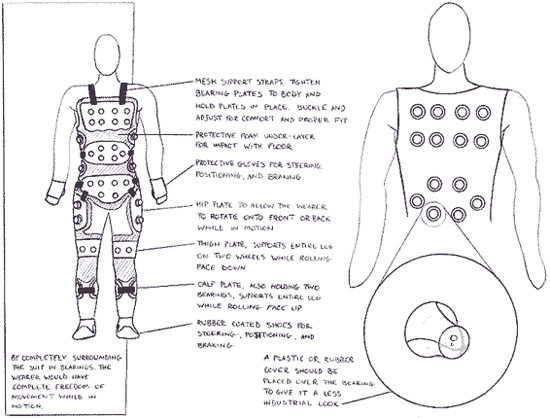 MESH SUPPORT STRAPS, TIGHTEN
BEARING PLATES TO BODY AND
HOLD PLATES IN PLACE. BUCKLE AND
ADJUST FOR COMFORT AND PROPER FIT
PROTECTIVE FOAM UNDER-LAYER
FOR IMPACT WITH FLOOR
PROTECTIVE GLOVES FOR STEERING,
POSITIONING, AND BRAKING
HIP PLATE TO ALLOW THE WEARER
TO ROTATE ONTO FRONT OR BACK
WHILE IN MOTION
THIGH PLATE, SUPPORTS ENTIRE LEG
ON TWO WHEELS WHILE ROLLING
FACE DOWN
CALF PLATE, ALSO HOLDING TWO
BEARINGS, SUPPORTS ENTIRE LEG
WHILE ROLLING FACE UP
RUBBER COATED SHOES FOR
STEERING, POSITIONING, AND
BRAKING
BY COMPLETELY SURROUNDING
THE SUIT IN BEARINGS, THE
WEARER WOULD HAVE
COMPLETE FREEDOM OF
MOVEMENT WHILE IN
MOTION.
A PLASTIC OR RUBBER
COVER SHOULD BE
PLACED OVER THE BEARING
TO GIVE IT A LESS
INDUSTRIAL LOOK